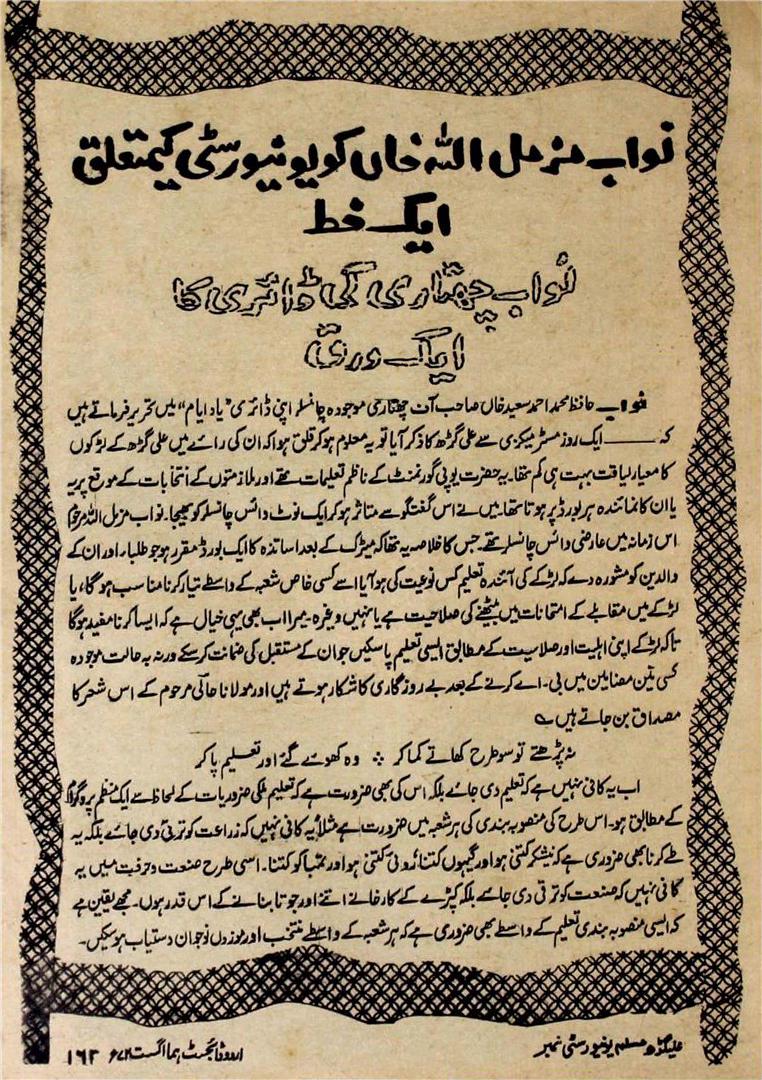 نواب مزمل اللہ خاں کو یونیورسٹی کیمتعلق
ایک خط
نواب چھتاری کی ڈائری کا
ایک ورق
نواب حافظ محمد احمد سعید خاں صاحب آف چھتاری موجودہ چانسلر اپنی ڈائری "یاد ایام" میں تحریر فرماتے ہیں
کہ ـــــ ایک روز مسٹر میکنزی سے علی گڑھ کا ذکر آیا تو یہ معلوم ہو کر قلق ہوا کہ ان کی رائے میں علی گڑھ کے لڑکوں
کا معیار لیاقت بہت ہی کم تھا۔ یہ حضرت یوپی گورنمنٹ کے ناظم تعلیمات تھے اور ملازمتوں کے انتخابات کے موقع پر یہ
یا ان کا نمائندہ ہر بورڈ پر ہوتا تھا۔ میں نے اس گفتگو سے متاثر ہو کر ایک نوٹ وائس چانسلر کو بھیجا۔ نواب مزمل اللہ مرحوم
اس زمانہ میں عارضی وائس چانسلر تھے۔ جس کا خلاصہ یہ تھا کہ میٹرک کے بعد اساتذہ کا ایک بورڈ مقرر ہو جو طلباء اور ان کے
والدین کو مشورہ دے کہ لڑکے کی آئندہ تعلیم کس نوعیت کی ہو آیا اسے کسی خاص شعبہ کے واسطے تیار کرنا مناسب ہو گا، یا
لڑکے میں مقابلے کے امتحانات میں بیٹھنے کی صلاحیت ہے یا نہیں وغیرہ۔ میرا اب بھی یہی خیال ہے کہ ایسا کرنا مفید ہوگا
تاکہ لڑکے اپنی اہلیت اور صلاحیت کے مطابق ایسی تعلیم پا سکیں جو ان کے مستقبل کی ضمانت کر سکے ورنہ بہ حالت موجودہ
کسی تین مضامین میں بی۔ اے کرنے کے بعد بے روزگاری کا شکار ہوتے ہیں اور مولانا حالی مرحوم کے اس شعر کا
مصداق بن جاتے ہیں ؎
نہ پڑھتے تو سو طرح کھاتے کما کر ؞ وہ کھوئے گئے اور تعلیم پا کر
اب یہ کافی نہیں ہے کہ تعلیم دی جائے بلکہ اس کی بھی ضرورت ہے کہ تعلیم ملکی ضروریات کے لحاظ سے ایک منظم پروگرام
کے مطابق ہو۔ اس طرح کی منصوبہ بندی کی ہر شعبہ میں ضرورت ہے مثلاً یہ کافی نہیں کہ زراعت کو ترقی دی جائے بلکہ یہ
طے کرنا بھی ضروری ہے کہ نیشکر کتنی ہو اور گیہوں کتنا روئی کتنی ہو اور تمباکو کتنا۔ اسی طرح صنعت و حرفت میں یہ
کافی نہیں کہ صنعت کو ترقی دی جائے بلکہ کپڑے کے کارخانے اتنے اور جوتا بنانے کے اس قدر ہوں۔ مجھے یقین ہے
کہ ایسی منصوبہ بندی تعلیم کے واسطے بھی ضروری ہے کہ ہر شعبہ کے واسطے منتخب اور موزوں نوجوان دستیاب ہو سکیں۔
علیگڑھ مسلم یونیورسٹی نمبر
اردو ڈائجسٹ ہما اگست ۷۲ء ۱۶۲